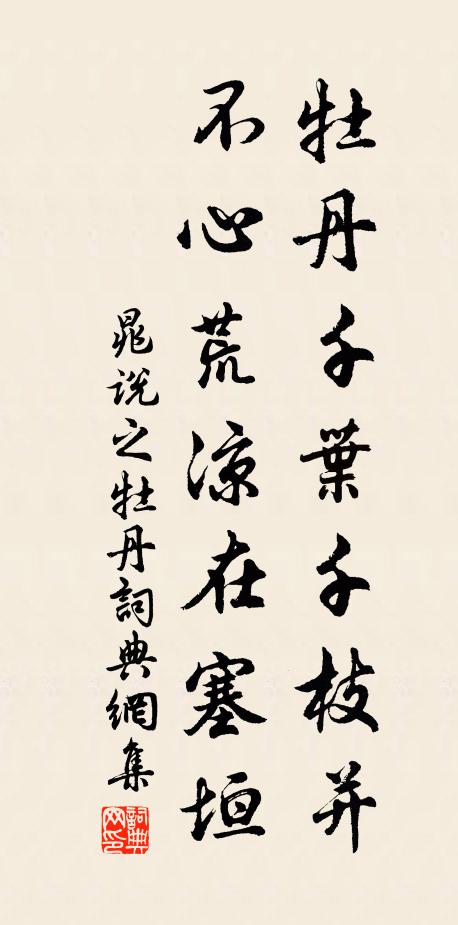 牡丹千葉千枝并
不心荒凉在塞垣
晁説之牡丹詞典網集
詞典網印